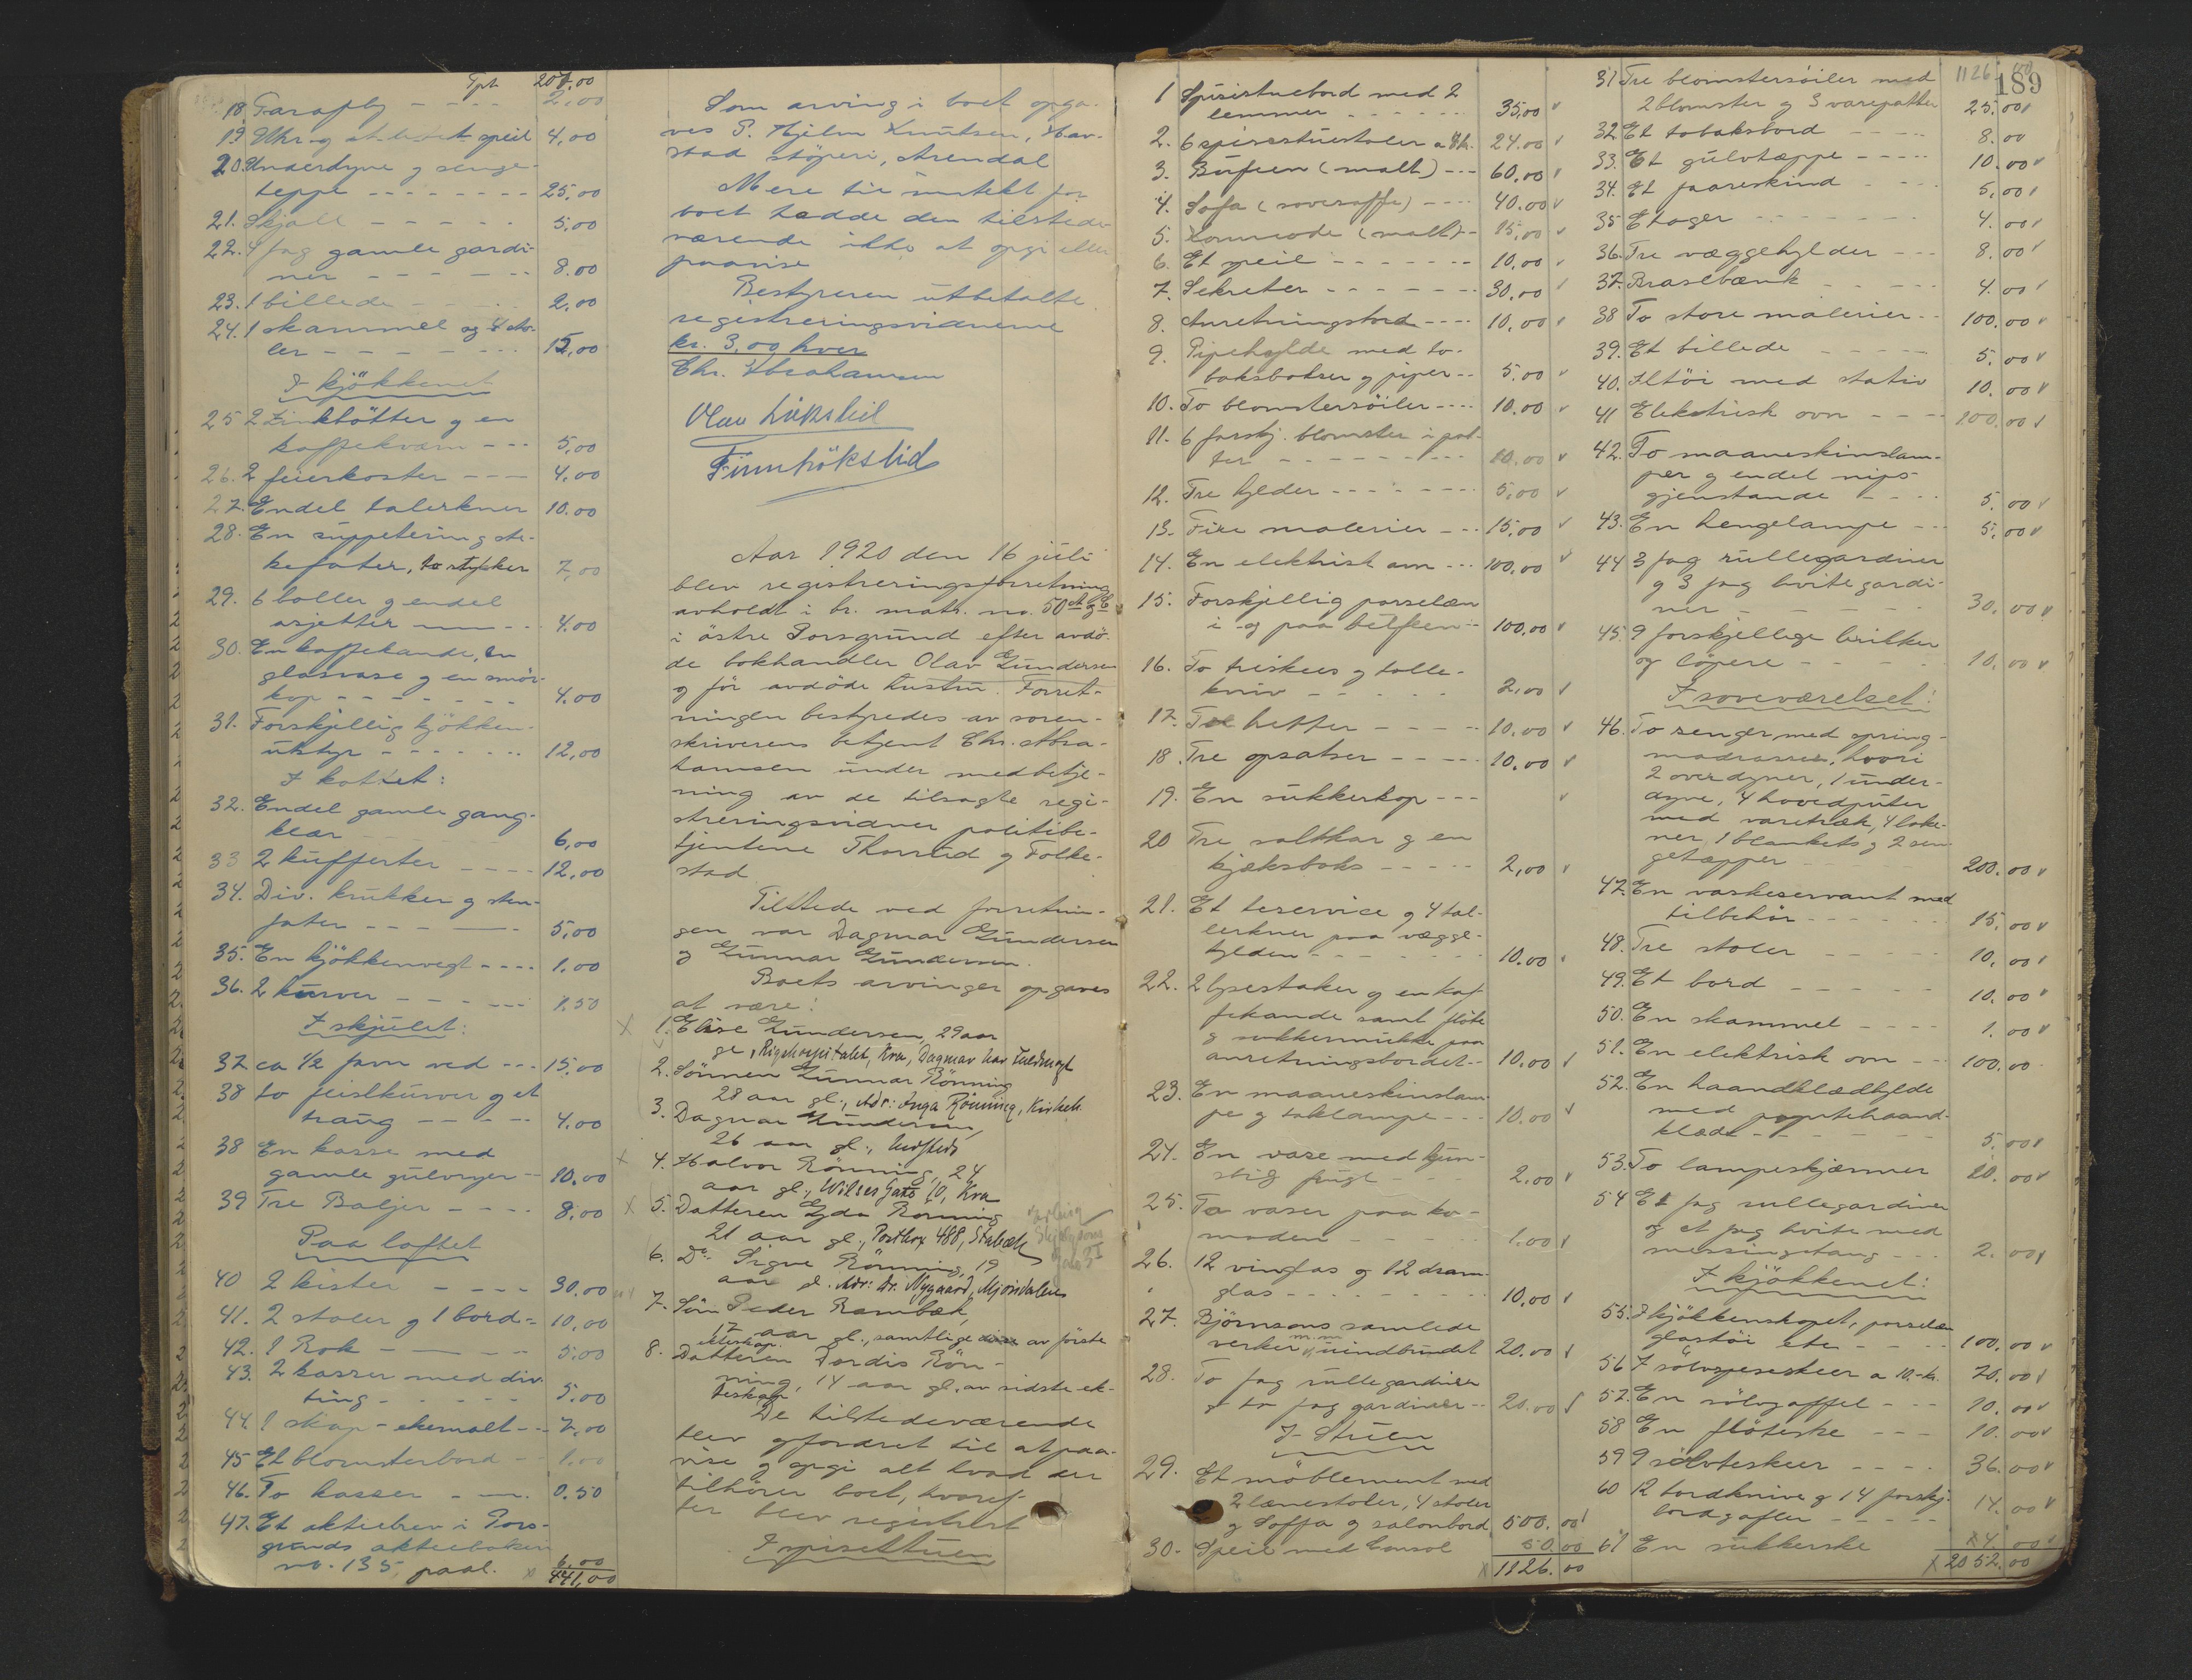 Tpt. 207,00
18. Paraply - - - - 2,00
19. Uhr og et litet speil 4,00
20. Underdyne og senge-
teppe - - - - - - - - 25,00
21. Skjæll - - - - - 5,00
22. 4 fag gamle gardi-
ner - - - - - - - 8.00
23. 1 billede - - - - 2,00
24. 1 skammel og 4 sto-
ler - - - - - - - 15,00
I kjökkenet
25 2 Zinkbötter og en
kaffekværn - - - 5,00
26. 2 feierkoster - - - 4,00
27. Endel talerkner 10.00
28. En suppeterin og ste-
kefater, to stykker 7,00
29. 6 boller og endel
asjetter - - - 4.00
30. En kaffekande, en
glasvase og en smör-
kop - - - - - - - 4.00
31. Forskjellig kjökken-
utstyr - - - - - - 12,00
I kottet:
32. Endel gamle gang-
klær 6,00
33 2 kufferter - - - - 12,00
34. Div. krukker og sten-
fater - - - - - 5,00
35. En kjökkenvegt - - - - 1.00
36. 2 kurver - - - - - 1,50
I skjulet:
37 ca 1/2 favn ved - - - 15,00
38 to feislkurver og et
traug - - - - - 4.00
38 En kasse med
gamle gulvryer - - 10.00
39 Tre Baljer - - - - 8,00
Paa loftet
40 2 kister - - - - 30.00
41. 2 stoler og 1 bord - 10,00
42. 1 Rok - - - - - 5.00
43. 2 kasser med div.
ting - - - - - 5.00
44. 1 skap - ekemalt - - 7,00
45 Et blomsterbord - - 1.00
46. To kasser - - - 0.50
47. Et aktiebrev i Pors-
grunds aktiebokeri
no. 135, paal. 6,00
x 441,00
Som arving i boet opga-
ves P. Hjelm Knutsen, Hav-
stad stöperi, Arendal
Mere til inntekt for
boet hadde den tilstede-
værende ikke at opgi eller
paavise
Bestyreren utbetalte
registreringsvidnerne
kr. 3,00 hver
Chr. Abrahamsen
Olav Lökslid
Finn Lökslid
Aar 1920 den 16 juli
blev registreringsforretning
avholdt i br. matr. no. 50 A og C
i östre Porsgrund efter avdö-
de bokhandler Olav Gundersen
og för avdöde hustru. Forret-
ningen bestyredes av soren-
skriverens betjent Chr. Abra-
hamsen under medbetje-
ning av de tilsagte regi-
streringsvidner politibe-
tjentene Thorrud og Folke-
stad
Tilstede ved forretnin-
gen var Dagmar Gundersen
og Gunnar Gundersen.
Boets arvinger opgaves
at være:
x 1. Elise Gundersen, 29 aar
gl., Rigshospitalet, Kra, Dagmar har fuldmagt
2. Sönnen Gunnar Rönning
28 aar gl., Adr: Inga Rönning, Kirkeh.
3. Dagmar Gundersen,
26 aar gl., husfields
x 4. Halvor Rönning, 24
aar gl., Wilses Gate 10, Kra
x 5. Datteren Gyda Rönning
21 aar gl., Postbox 488, Stabæk
6. Do. Signe Rönning, 19
aar gl. Adr: Dr. Nygaard, Mjöndalen
7. Sön Peder Rambæk,
17 aar gl., samtlige av förste
ekteskap.
8. Datteren Dordis Rön-
ning, 14 aar gl. av sidste ek-
teskap
De tilstedeværende
blev opfordret til at paa-
vise og opgi alt hvad der
tilhörer boet, hvoref-
ter blev registrert
I spisestuen
1 Spisestuebord med 2
lemmer - - - - - - 35,00 v
2. 6 spisestuestoler a 4 kr. 24.00 v
3. Büfeen (malt) - - - 60,00 v
4. Sofa (soveroffe) - - - - 40.00 v
5. Kommode (malt) - - 15,00 v
6. Et speil - - - - - - - 10,00 v
7. Sekreter - - - - - - - 30,00 v
8. Anretningsbord - - - - 10,00 v
9. Pipehylde med to-
baksbokser og piper - - 5.00 v
10. To blomstersöiler - - - - 10.00 v
11. 6 forskj. blomster i pot-
ter - - - - - - - - - 10.00 v
12. Tre hylder - - - - - - - 5,00 v
13. Fire malerier - - - 15.00 v
14. En elektrisk ovn - - - 100.00 v
15. Forskjellig porselæn
i og paa büfeen - - 100,00 v
16. To theskeer og tolle-
kniv - - - - - 2,00 v
17. To hefter - - - - - 10,00 v
18. Tre opsatser - - - - - 10,00 v
19. En sukkerkop - - - v
20 Tre saltkar og en
kjæksboks - - - - - 2,00 v
21. Et teservice og 4 tal-
lerkner paa vægge-
hylden - - - - - - - 10.00 v
22. 2 lysestaker og en kaf-
fekande samt flöte
og sukkermukke paa
anretningsbordet - - 10,00 v
23. En maaneskinslam-
pe og taklampe - - - 10.00 v
24. En vase med kun-
stig fugl - - - 2.00 v
25. To vaser paa ko-
moden - - - - - 1.00 v
26. 12 vinglas og 12 dram-
glas - - - - - - - - 10,00 v
27. Björnsons samlede
verker m.m. uindbundet 20.00 v
28. To fag rullegardiner
og to fag gardiner - - 20.00 v
I Stuen
29. Et möblement med
2 lænestoler, 4 stoler
og Soffa og salonbord 500.00
30. Speil med Consol 50.00
x 1126.00
1126,00
189
31 Tre blomstersöiler med
2 blomster og 3 varepotter 25.00 v
32. Et tobaksbord - - - - 8.00
33. Et gulvtæppe - - - - - 10.00 v
34. Et faareskind - - - - 5,00 v
35 Etager - - - - - - - 4.00 v
36. Tre væggehylder - - - 8,00 v
37. Braselbænk - - - - - 4.00 v
38 To store malerier - - 100.00 v
39. Et billede - - - - - 5.00 v
40. Ildtöi med stativ 10.00 v
41 Elektrisk ovn - - - - 100.00 v
42. To maaneskinslam-
per og endel nips-
gjenstande - - - - 5.00 v
43. En hengelampe - - - 5,00 v
44 3 fag rullegardiner
og 3 fag hvite gardi-
ner - - - - - - - 30.00 v
45. 9 forskjellige brikker
og löpere - - - - - 10.00 v
I soveværelset:
46. To senger med spring-
madrasser, hvori
2 overdyner, 1 under-
dyne, 4 hovedputer
med varetræk, 4 lake-
ner, 1 blankets og 2 sen-
getæpper 200.00 v
47. En vaskeservant med
tilbehör - - - - - - 15.00 v
48. Tre stoler - - - - - 10.00 v
49. Et bord - - - - - - 10.00 v
50. En skammel - - - - 1.00 v
51. En elektrisk ovn - - 100.00
52. En haandklædhylde
med pyntehaand-
klæde - - - - - - 5.00 v
53. To lampeskjærmer 20.00 v
54 Et fag rullegardiner
og et fag hvite med
messingstang - - - 2.00 v
I kjökkenet:
55. I kjökkenskapet, porselæn
glastöi etc - - - 100.00 v
56 7 sölvspiseskeer a 10.- kr. 70.00 v
57. En sölvgaffel - - - 10.00 v
58 En flöteske - - - 10.00 v
59 9 sölvteskeer - - - - 36.00 v
60 12 bordknive og 14 forskj.
bordgafler - - - - - 14.00 v
61 En sukkerske 4.00 v
x 2052.00